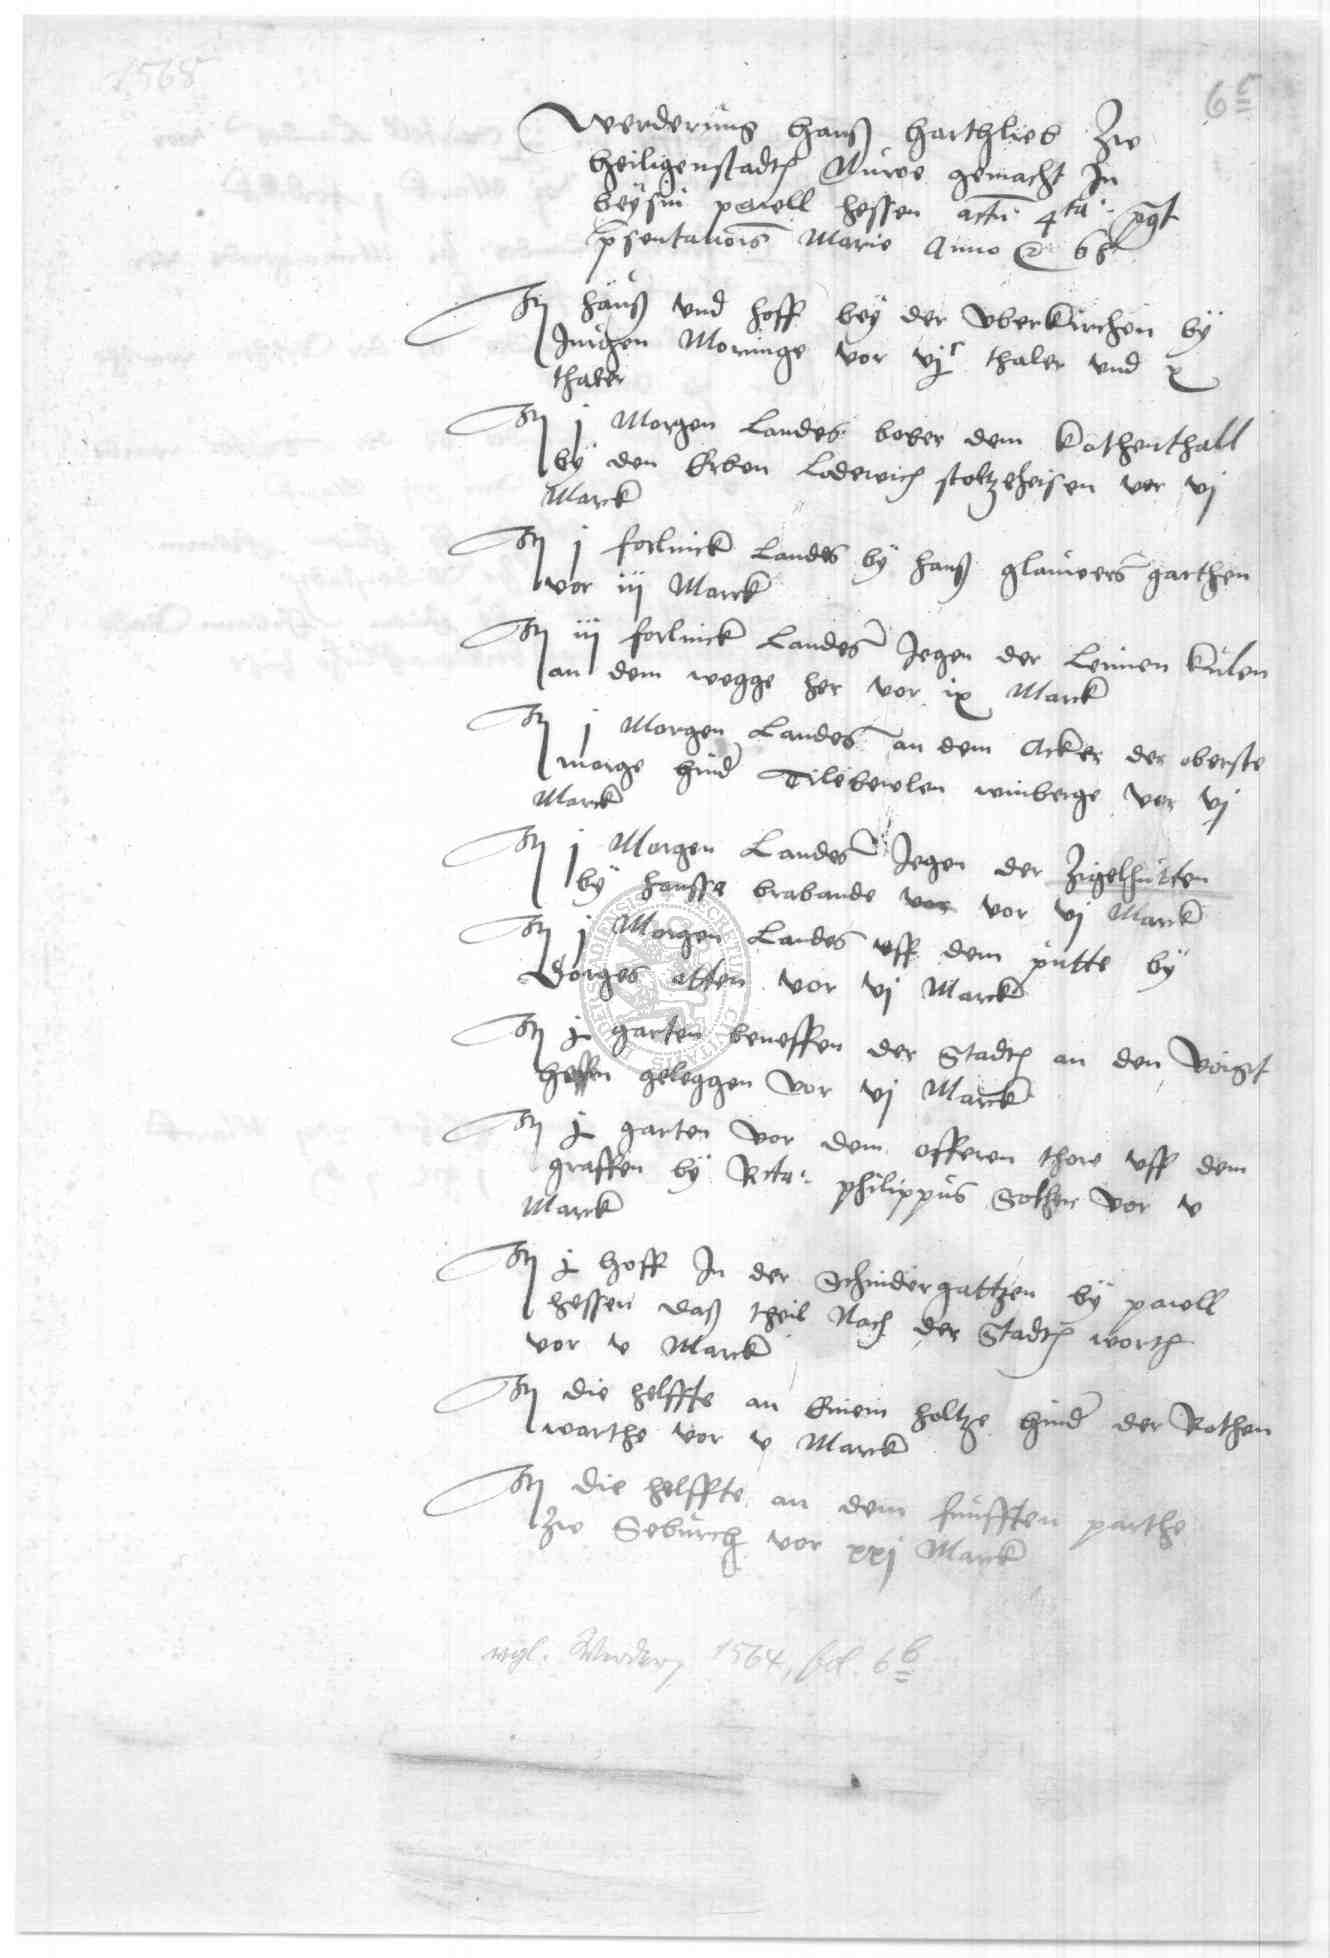 1565
6c
Werderung Hanß Harthlieb Zw
heiligenstadt Nuwe gemacht In
beysin pawell hessen actu 4ta pqt
psentauois Marie Anno 65
It hauß vnd hoff bey der vberkirchen by
Jurgen Moringe vor vjc thaler vnd x
thaler
It j Morgen Landes bober dem Kothenthall
by den Erben Lodewich stoltzeheisen vor vj
Marck
It j forlinck Landes by hanß glauwers garthen
vor iij Marck
It iij forlinck Landes Jegen der Leimen kulen
an dem wegge her vor ix Marck
It j Morgen Landes an dem Acker der oberste
morge hind Tilebewlen winberge vor vj
Marck
It j Morgen Landes Jegen der Zigelhutten
by hansse brabande vor vor vj Marck
It j Morgen Landes vff dem putte by
Gorges otten vor vj Marck
It j garten beneffen der Stadt an den Voigt
heffen geleggen vor vj Marck
It j garten vor dem offeren thore vff dem
graffen by Rcta philippus Sothen vor v
Marck
It j hoff In der Schindergattzen by pawell
hessen daß theil Nach der Stadt worth
vor v Marck
It die helffte an Einem holtze hind der Rothen
warthe vor v Marck
It die helffte an dem funfften parthe
Zw Seburch vor xxj Marck
vgl. Werder, 1564, fol. 6b